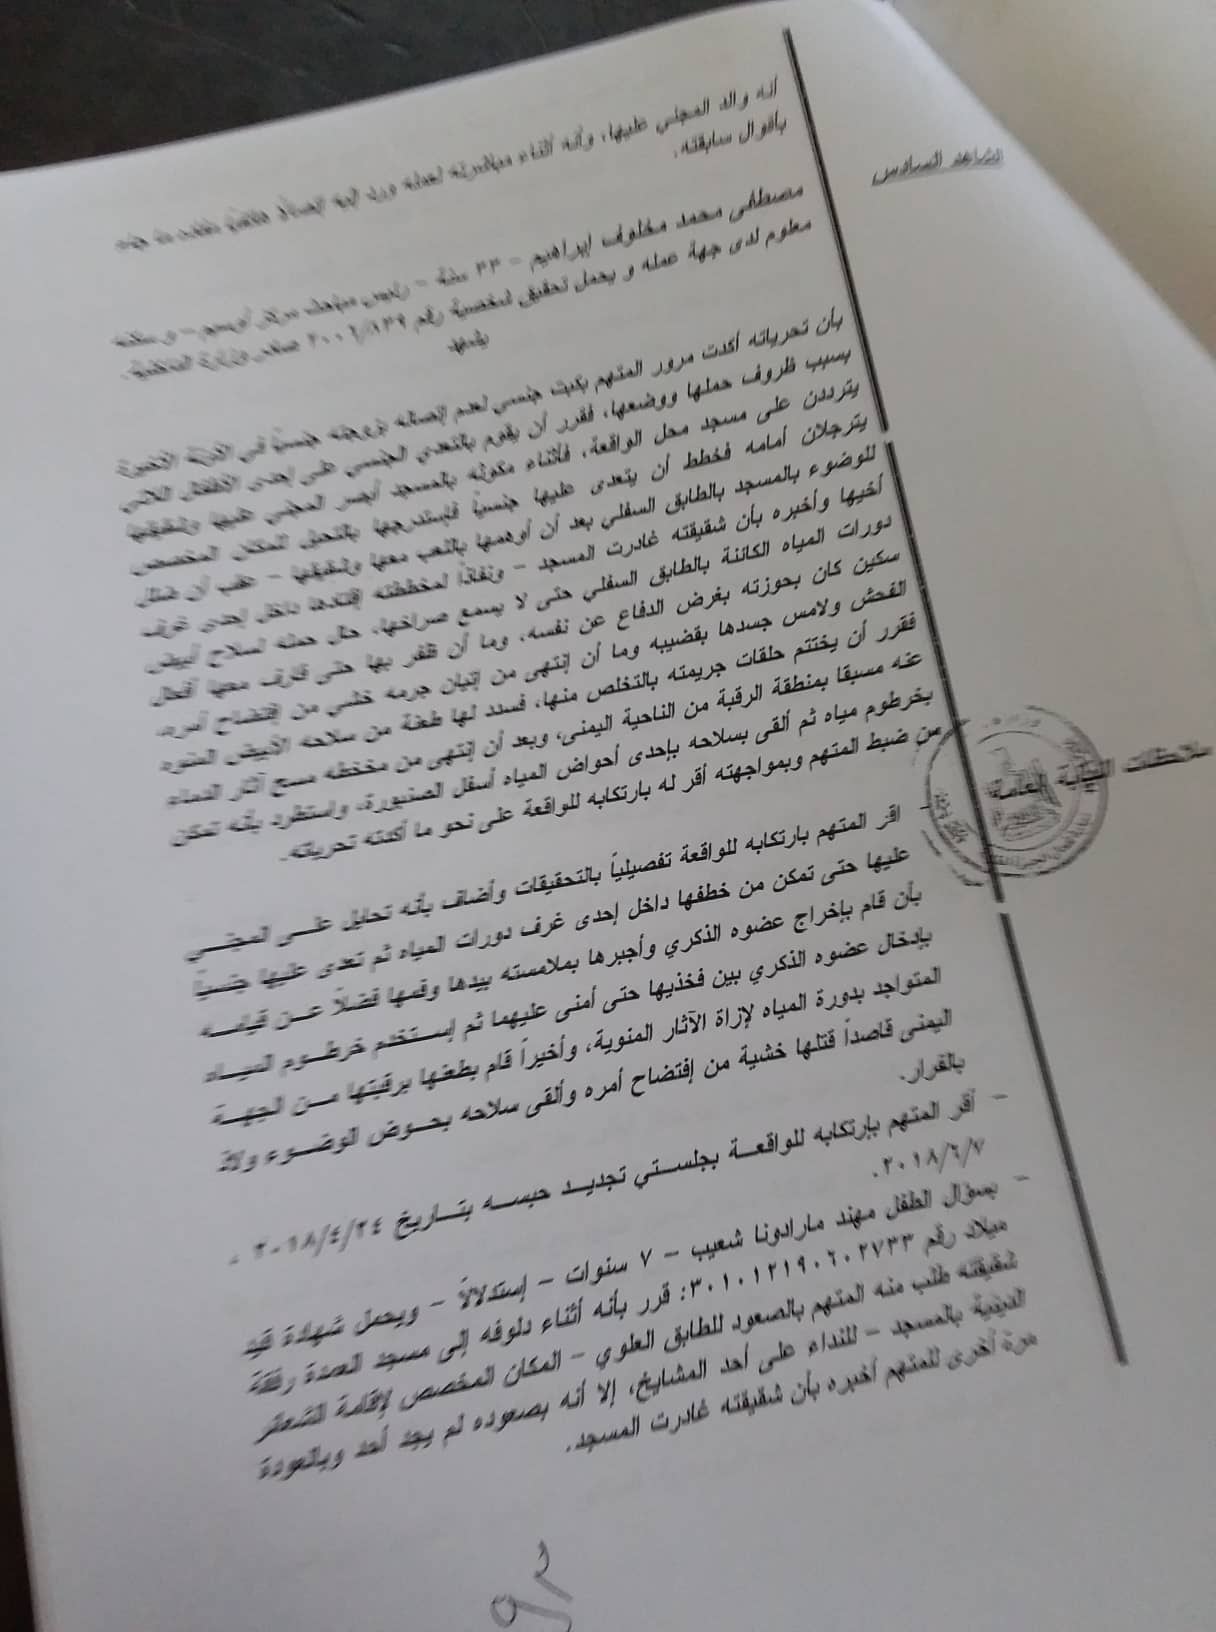 أنه والد المجني عليها، وأنه أثناء مباشرته لعمله ورد إليه إتصالاً هاتفياً
بأقوال سابقته.
الشاهد السادس
مصطفى محمد مخلوف إبراهيم – ٣٣ سنة – رئيس مباحث مركز أوسيم – وسكنه
معلوم لدى جهة عمله و يحمل تحقيق شخصية رقم ٢٠٠٦/١٣٩ صادر وزارة الداخلية.
يشهد
بأن تحرياته أكدت مرور المتهم بكبت جنسي لعدم إتصاله بزوجته جنسياً في الفترة الأخيرة
بسبب ظروف حملها ووضعها، فقرر أن يقوم بالتعدي الجنسي على إحدى الأطفال اللائي
يترددن على مسجد محل الواقعة، فأثناء مكوثه بالمسجد أبصر المجني عليها وشقيقها
يترجلان أمامه فخطط أن يتعدى عليها جنسياً فإستدرجها بالتحيل للمكان المخصص
للوضوء بالمسجد بالطابق السفلي بعد أن أوهمها باللعب معها وشقيقها – عقب أن ضلل
أخيها وأخبره بأن شقيقته غادرت المسجد – ونفاذاً لمخططته إقتادها داخل إحدى غرف
دورات المياه الكائنة بالطابق السفلي حتى لا يسمع صراخها، حال حمله لسلاح أبيض
سكين كان بحوزته بغرض الدفاع عن نفسه، وما أن ظفر بها حتى قارف معها أفعال
الفحش ولامس جسدها بقضيبه وما أن إنتهى من إتيان جرمه خشي من إفتضاح أمره،
فقرر أن يختتم حلقات جريمته بالتخلص منها، فسدد لها طعنة من سلاحه الأبيض المنوه
عنه مسبقا بمنطقة الرقبة من الناحية اليمنى، وبعد أن إنتهى من مخططه مسح آثار الدماء
بخرطوم مياه ثم ألقى بسلاحه بإحدى أحواض المياه أسفل الصنبورة، واستطرد بأنه تمكن
من ضبط المتهم وبمواجهته أقر له بارتكابه للواقعة على نحو ما أكدته تحرياته.
ملاحظات النيابة العامة
- اقر المتهم بارتكابه للواقعة تفصيلياً بالتحقيقات وأضاف بأنه تحايل على المجني
عليها حتى تمكن من خطفها داخل إحدى غرف دورات المياه ثم تعدى عليها جنسياً
بأن قام بإخراج عضوه الذكري وأجبرها بملامسته بيدها وفمها فضلاً عن قيامه
بإدخال عضوه الذكري بين فخذيها حتى أمنى عليهما ثم إستخدم خرطوم المياه
المتواجد بدورة المياه لإزاة الآثار المنوية، وأخيراً قام بطعنها برقبتها من الجهة
اليمنى قاصداً قتلها خشية من إفتضاح أمره وألقى سلاحه بحوض الوضوء ولاذ
بالفرار.
- أقر المتهم بإرتكابه للواقعة بجلستي تجديد حبسه بتاريخ ٢٠١٨/٤/٢٤ ،
٢٠١٨/٦/٧.
- بسؤال الطفل مهند مارادونا شعيب – ٧ سنوات – إستدلالاً – ويحمل شهادة قيد
ميلاد رقم ٣٠١٠١٢١٩٠٦٠٢٧٣٣: قرر بأنه أثناء دلوفه إلى مسجد العمدة رفقة
شقيقته طلب منه المتهم بالصعود للطابق العلوي – المكان المخصص لإقامة الشعائر
الدينية بالمسجد – للنداء على أحد المشايخ، إلا أنه بصعوده لم يجد أحد وبالعودة
مرة أخرى للمتهم أخبره بأن شقيقته غادرت المسجد.